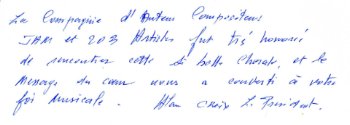 La Compagnie d'Auteurs Compositeurs
et 203 Articles fut très honoré
de rencontrer cette si belle Chorale, et le
message du cœur nous a converti à votre
foi musicale. Le Président.